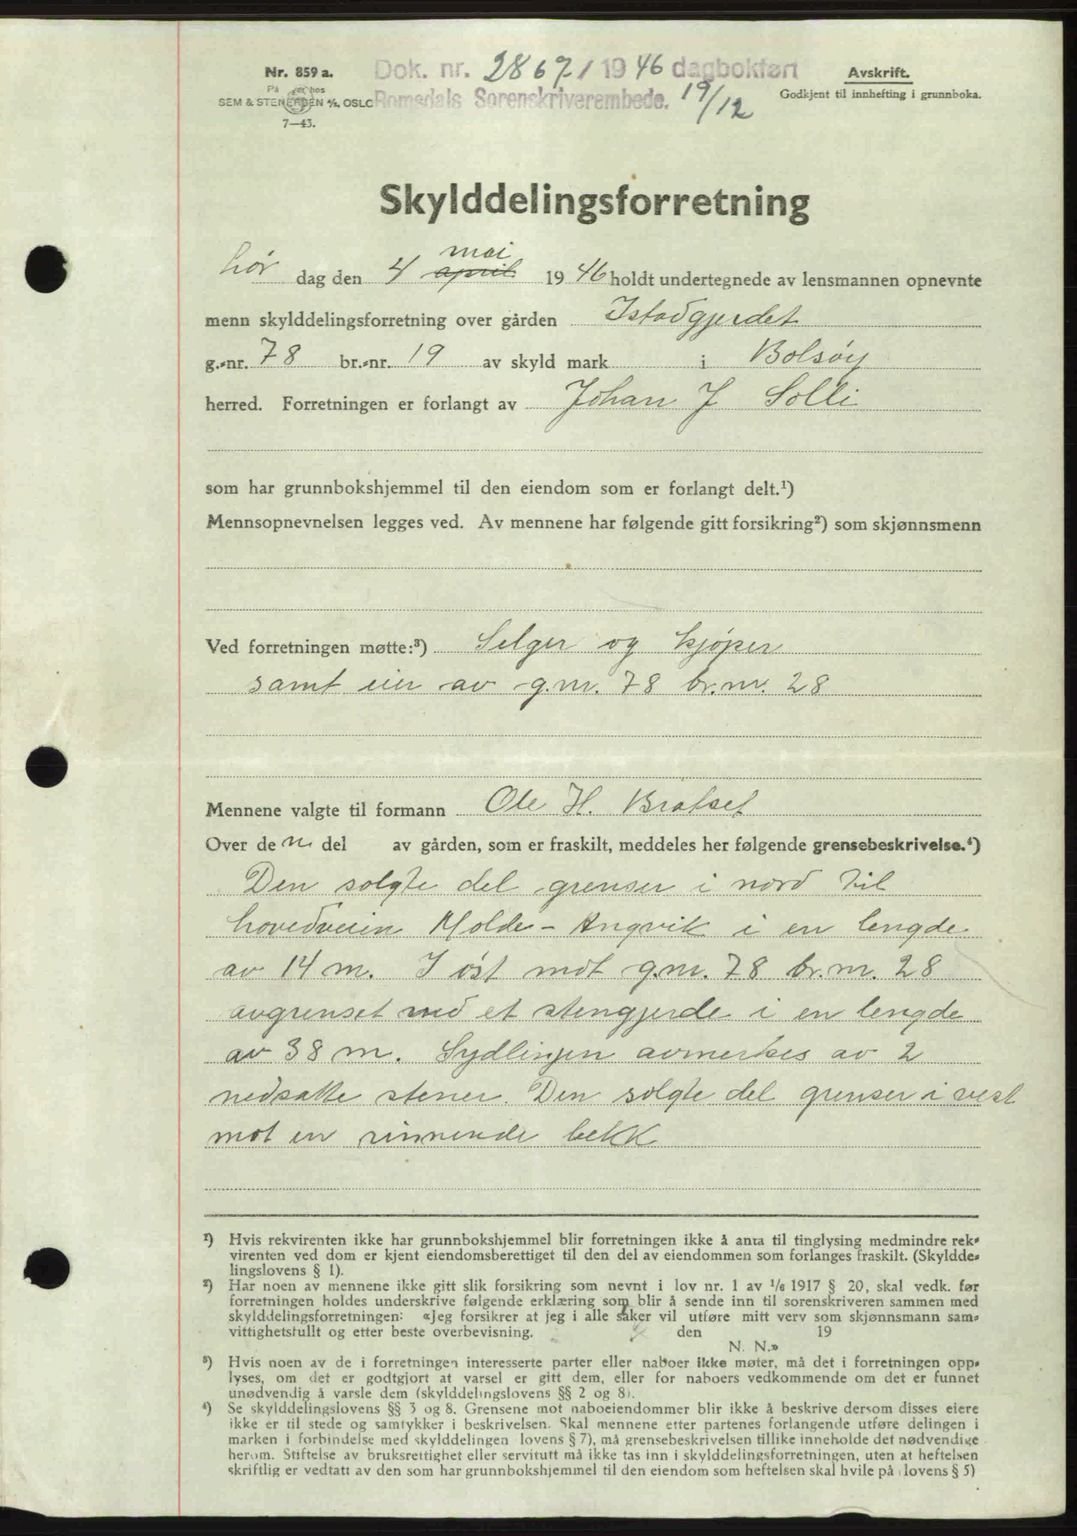 Nr. 859 a.
På hos
SEM & STENERSEN A/S, OSLO
7—43.
Dok. nr. 2867 / 1946 dagbokført
Romsdals Sorenskriverembede. 19/12
Avskrift.
Godkjent til innhefting i grunnboka.
Skylddelingsforretning
mai
Lør dag den 4 april 1946 holdt undertegnede av lensmannen opnevnte
menn skylddelingsforretning over gården Istadgjerdet
g.-nr. 78 br.-nr. 19 av skyld mark i Bolsøy
herred. Forretningen er forlangt av Johan J Solli
som har grunnbokshjemmel til den eiendom som er forlangt delt.¹)
Mennsopnevnelsen legges ved. Av mennene har følgende gitt forsikring²) som skjønnsmenn
Ved forretningen møtte:³) Selger og kjøper
samt eier av g.nr. 78 br.nr. 28
Mennene valgte til formann Ole H. Bratset
Over de n del av gården, som er fraskilt, meddeles her følgende grensebeskrivelse.⁴)
Den solgte del grenser i nord til
hovedveien Molde - Angvik i en lengde
av 14 m. I øst mot g.nr. 78 br.nr. 28
avgrenset med et stengjerde i en lengde
av 38 m. Sydlinjen avmerkes av 2
nedsatte stener. Den solgte del grenser i vest
mot en rinnende bekk
¹) Hvis rekvirenten ikke har grunnbokshjemmel blir forretningen ikke å anta til tinglysing medmindre rek-
virenten ved dom er kjent eiendomsberettiget til den del av eiendommen som forlanges fraskilt. (Skyldde-
lingslovens § 1).
²) Har noen av mennene ikke gitt slik forsikring som nevnt i lov nr. 1 av 1/6 1917 § 20, skal vedk. før
forretningen holdes underskrive følgende erklæring som blir å sende inn til sorenskriveren sammen med
skylddelingsforretningen: «Jeg forsikrer at jeg i alle saker vil utføre mitt verv som skjønnsmann sam-
vittighetsfullt og etter beste overbevisning. den 19
N. N.»
³) Hvis noen av de i forretningen interesserte parter eller naboer ikke møter, må det i forretningen opp-
lyses, om det er godtgjort at varsel er gitt dem, eller for naboers vedkommende om det er funnet
unødvendig å varsle dem (skylddelingslovens §§ 2 og 8).
⁴) Se skylddelingslovens §§ 3 og 8. Grensene mot naboeiendommer blir ikke å beskrive dersom disses eiere
ikke er til stede og samtykker i beskrivelsen. Skal mennene etter partenes forlangende utføre delingen i
marken i forbindelse med skylddelingen (lovens § 7), må grensebeskrivelsen tillike inneholde det nødvendige
herom. Stiftelse av bruksrettighet eller servitutt må ikke tas inn i skylddelingsforretningen, uten at heftelsen
skriftlig er vedtatt av den som har grunnbokshjemmel til den eiendom som heftelsen skal hvile på (lovens § 5)